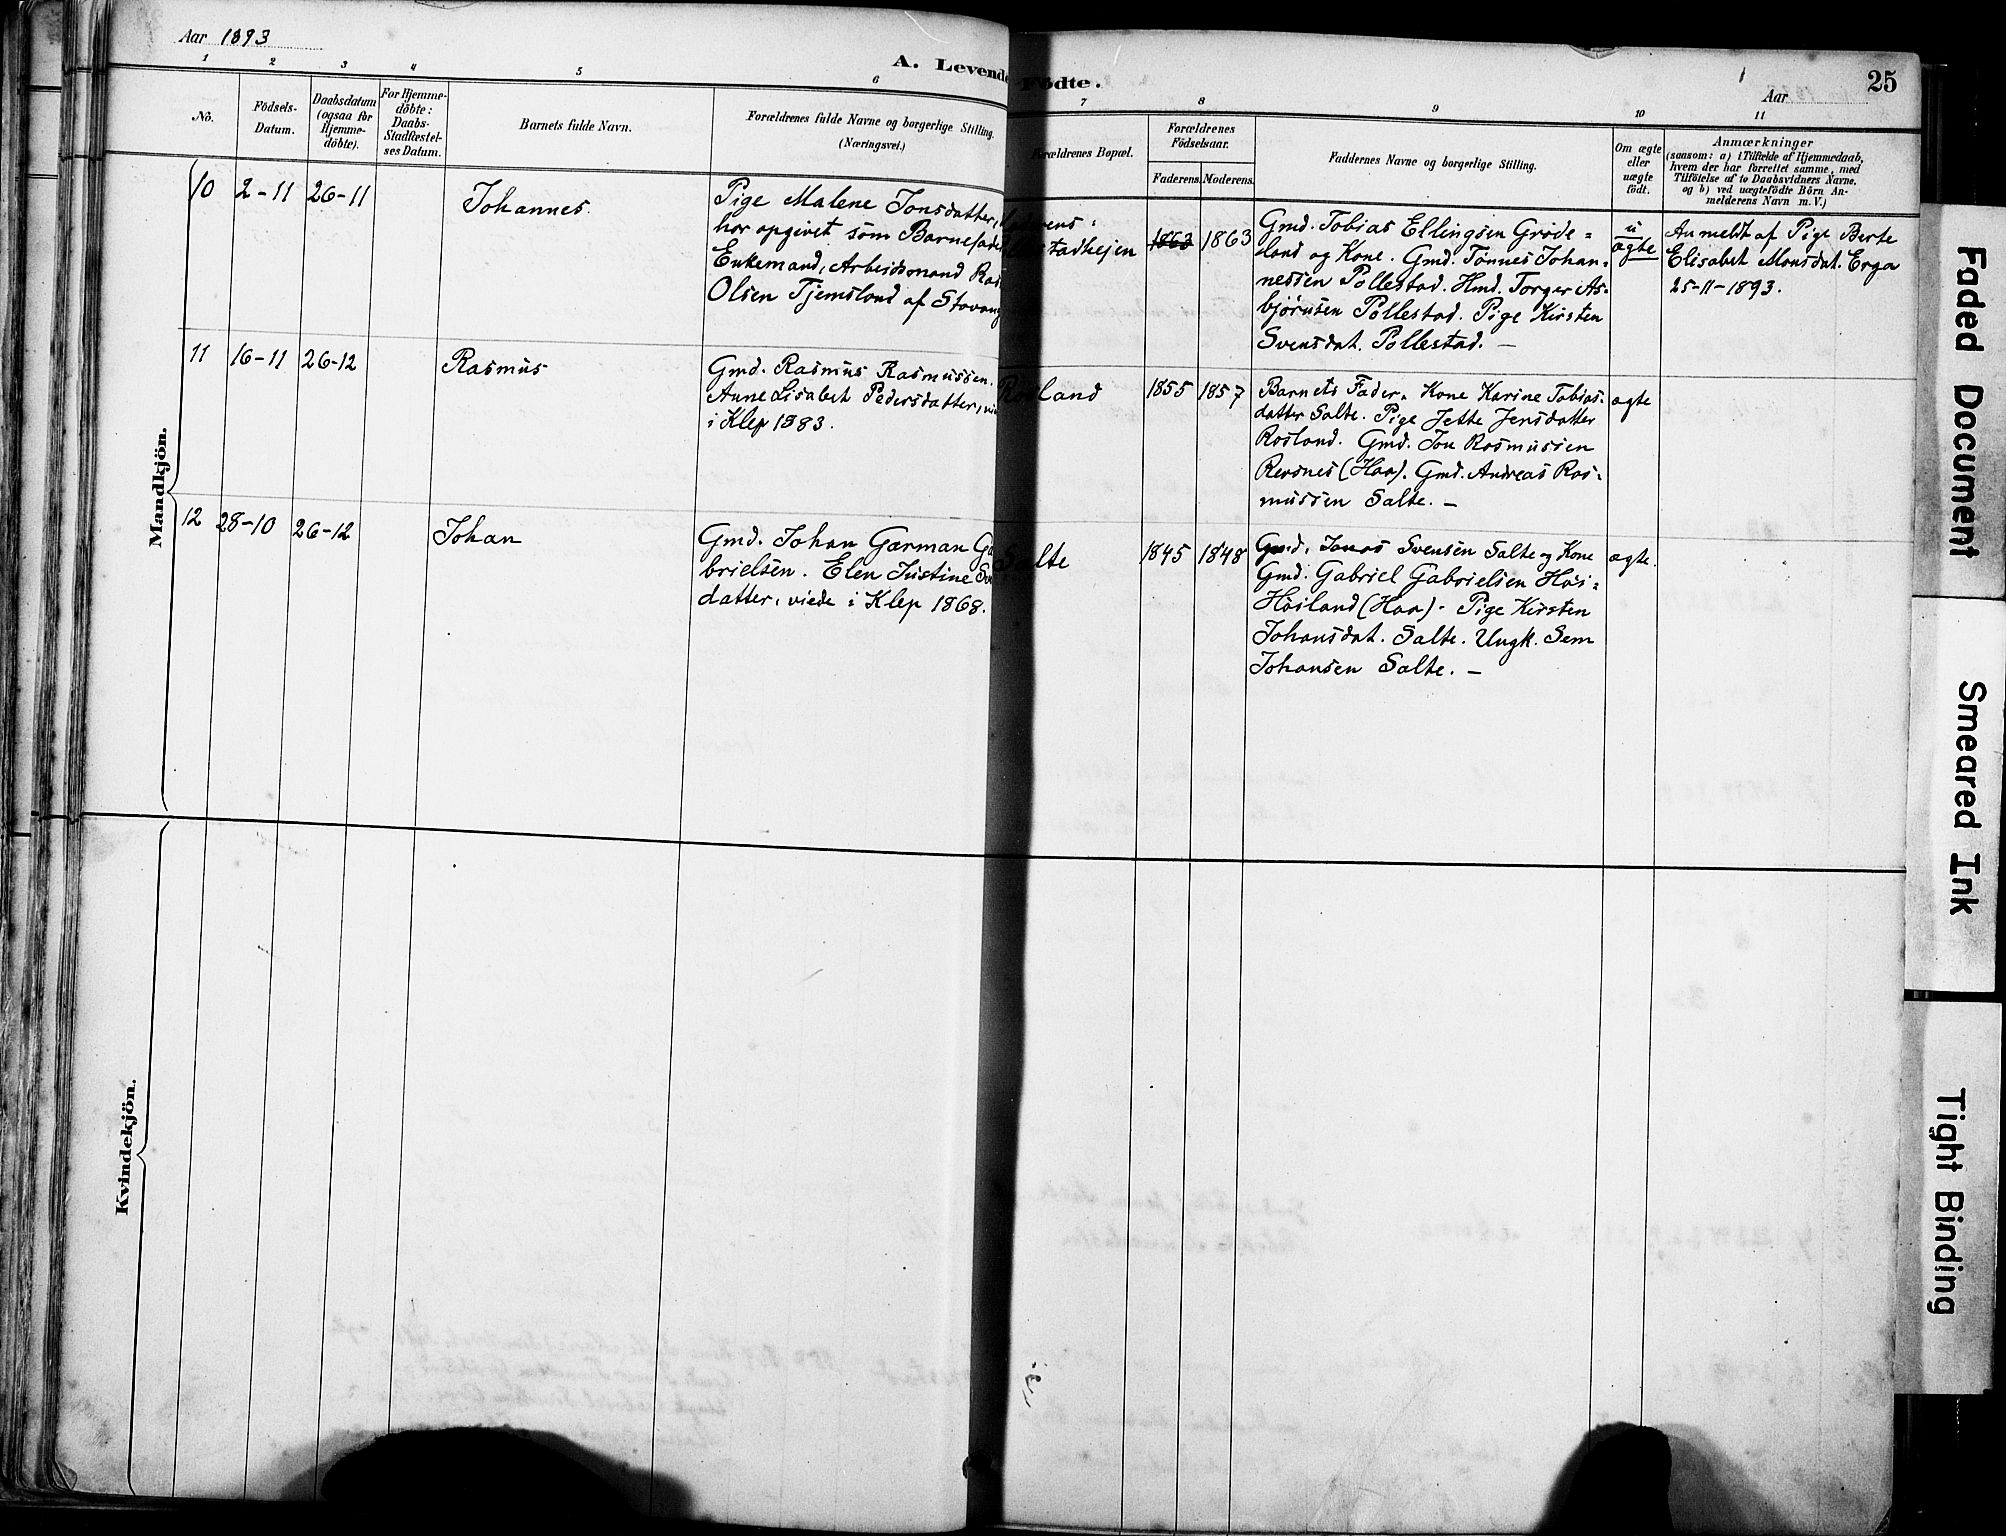 Aar 1893
A. Levende Födte.
Aar
25
1 2 3 4 5 6 7 8 9 10 11
No.
Födsels-
Datum.
Daabsdatum
(ogsaa for
Hjemme-
döbte).
For Hjemme-
döbte:
Daabs-
Stadfæstel-
ses Datum.
Barnets fulde Navn.
Forældrenes fulde Navne og borgerlige Stilling.
(Næringsvei.)
Forældrenes Bopæl.
Forældrenes
Födselsaar.
Faderens. Moderens.
Faddernes Navne og borgerlige Stilling.
Om ægte
eller
uægte
födt.
Anmærkninger
(saasom: a) i Tilfælde af Hjemmedaab,
hvem der har forrettet samme, med
Tilföielse af to Daabsvidners Navne,
og b) ved uægtefödte Börn An-
melderens Navn m. V.)
Mandkjön.
10 2-11 26-11 Johannes.
Pige Malene Jonsdatter,
har opgivet som Barnefader
Enkemand, Arbeidsmand Ras
Olsen Tjemsland af Stavang
1863 1863
Gmd. Tobias Ellingsen Grøde=
land og Kone. Gmd. Tønnes Johan=
nessen Pollestad. Hmd. Torger As=
bjørnsen Pollestad. Pige Kirsten
Svensdat. Pollestad. —
u
ægte
Anmeldt af Pige Berte
Elisabet Monsdat. Erga
25-11-1893.
11 16-11 26-12 Rasmus
Gmd. Rasmus Rasmussen.
Anne Lisabet Pedersdatter, vi
i Klep 1883.
Rosland 1855 1857
Barnets Fader. Kone Karine Tobias=
datter Salte. Pige Jette Jensdatter
Rosland. Gmd. Jon Rasmussen
Revsnes (Haa). Gmd. Andreas Ras=
mussen Salte. —
ægte
12 28-10 26-12 Johan
Gmd. Johan Garman Ga
brielsen. Elen Justine Sv
datter, viede i Klep 1868.
Salte 1845 1848
Gmd. Jonas Svensen Salte og Kone
Gmd. Gabriel Gabrielsen Høi=
Høiland (Haa). Pige Kirsten
Johansdat. Salte. Ungk. Sem
Johansen Salte. —
ægte.
Kvindekjön.
Faded Document
Smeared Ink
Tight Binding